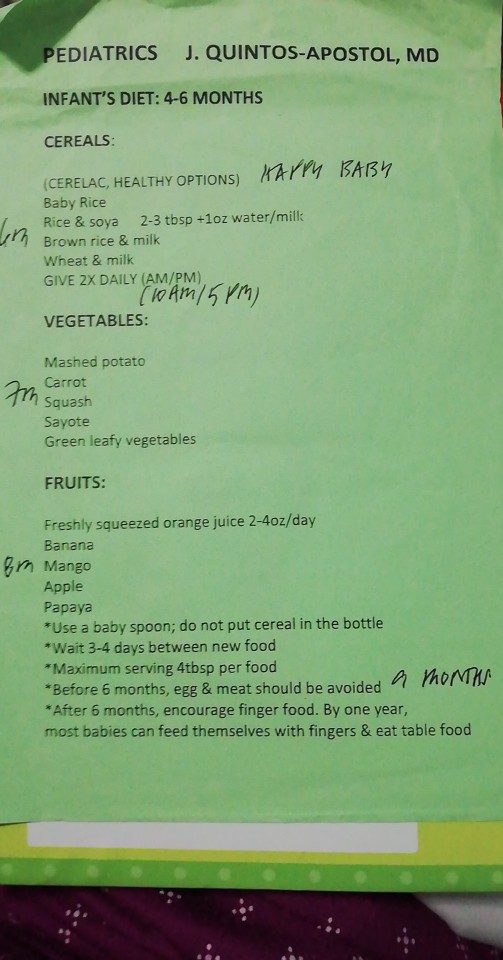 PEDIATRICS J. QUINTOS-APOSTOL, MD
INFANT'S DIET: 4-6 MONTHS
CEREALS:
(CERELAC, HEALTHY OPTIONS) HAPPY BABY
Baby Rice
Rice & soya 2-3 tbsp +1oz water/milk
6m Brown rice & milk
Wheat & milk
GIVE 2X DAILY (AM/PM)
(10AM/5PM)
VEGETABLES:
Mashed potato
Carrot
7m Squash
Sayote
Green leafy vegetables
FRUITS:
Freshly squeezed orange juice 2-4oz/day
Banana
8m Mango
Apple
Papaya
*Use a baby spoon; do not put cereal in the bottle
*Wait 3-4 days between new food
*Maximum serving 4tbsp per food
*Before 6 months, egg & meat should be avoided 9 MONTHS
*After 6 months, encourage finger food. By one year,
most babies can feed themselves with fingers & eat table food